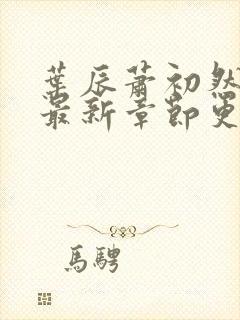 葉辰蕭初然
最新章節更
馬騁